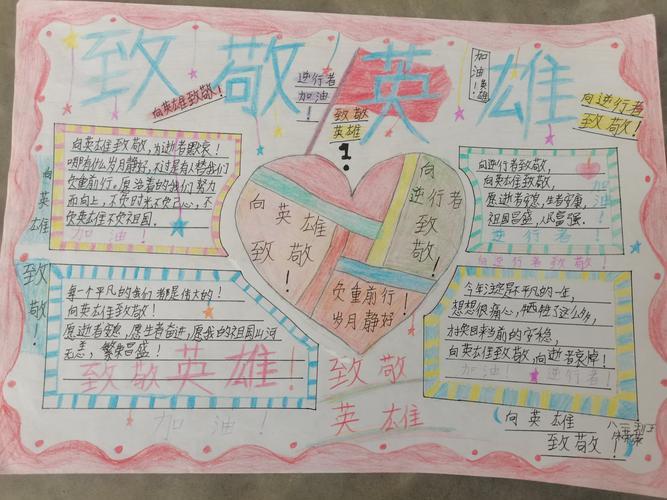 致敬英雄
向英雄致敬！
逆行者
加油！
致敬
英雄
！
加油！英雄
向逆行者
致敬！
向英雄致敬，为逝者默哀！
哪有什么岁月静好，不过是有人替我们
负重前行，愿活着的我们努力
而向上，不负时光不负己心，不
负英雄不负祖国。
加油！
向英雄
致敬！
向英雄
致敬！
向逆行者
致敬！
负重前行！
岁月静好！
向逆行者致敬，
向英雄致敬，
愿逝者安息，生者安康，
祖国昌盛，人民富强。
逆行者！
加油！
向逆行者致敬！
每一个平凡的我们都是伟大的！
向英雄致敬！
愿逝者安息，愿生者奋进，愿我的祖国山河
无恙，繁荣昌盛！
致敬英雄！
加油！
致敬
英雄
今年注定是不平凡的一年，
想想很痛心，牺牲了这么多，
才换回来当前的安稳，
向英雄致敬，向逝者哀悼！
加油！逆行者！
向英雄
致敬！